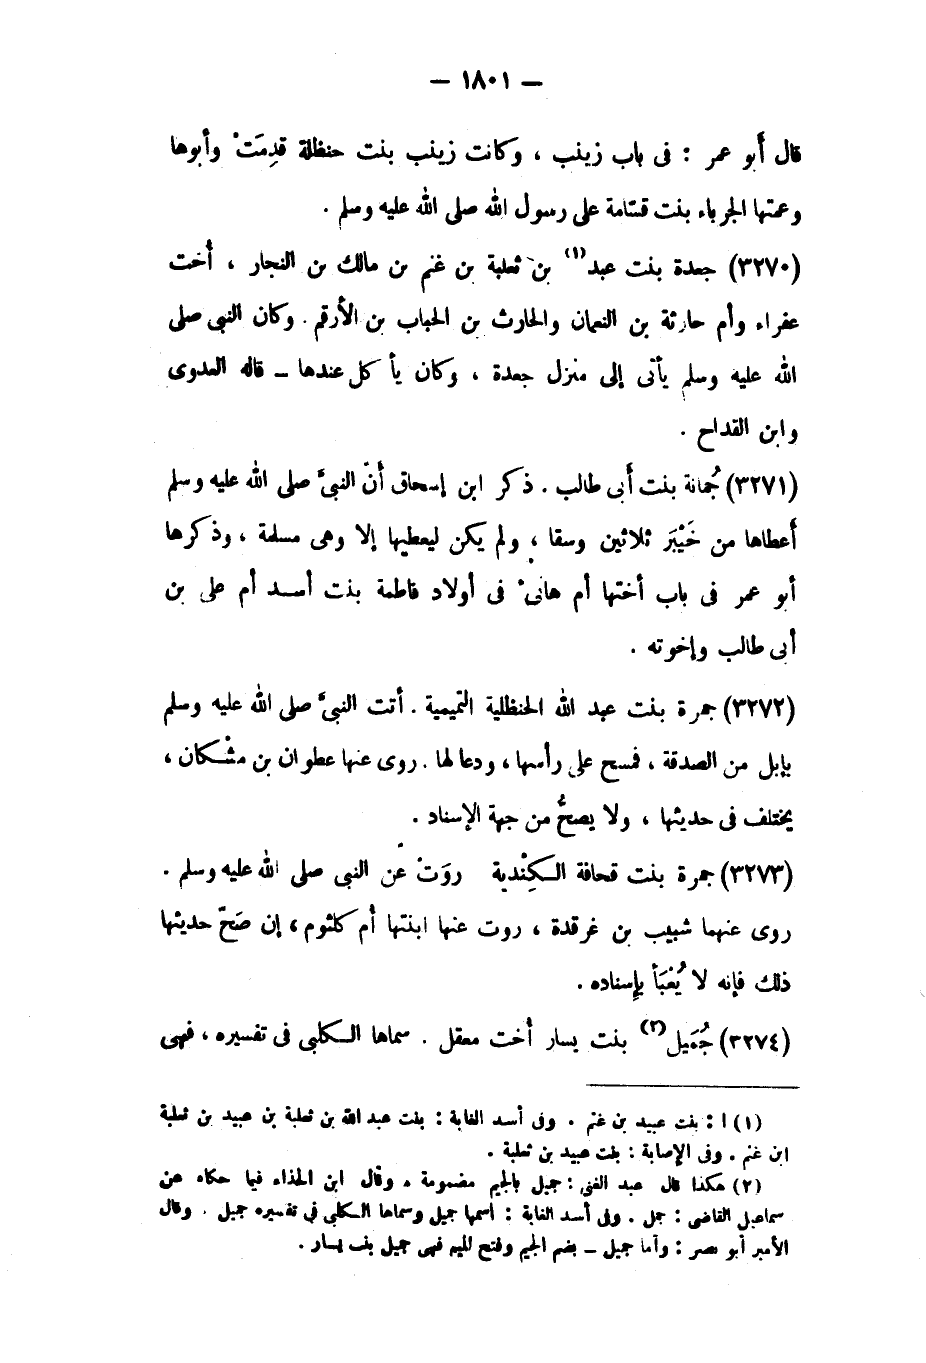 — ١٨٠١ —
قال أَبو عمر : فى باب زينب ، وكانت زينب بنت حنظلة قدِمَتْ وأبوها
وعمتها الجرباء بنت قسامة على رسول الله صلى الله عليه وسلم .
(٣٢٧٠) جعدة بنت عبد(١) بن ثعلبة بن غنم بن مالك بن النجار ، أخت
عفراء وأم حارثة بن النعمان والحارث بن الحباب بن الأرقم . وكان النبى صلى
الله عليه وسلم يأتى إلى منزل جعدة ، وكان يأكل عندها – قاله العدوى
وابن القداح .
(٣٢٧١) جُمانة بنت أبى طالب . ذكر ابن إسحاق أنّ النبىّ صلى الله عليه وسلم
أعطاها من خَيْبَر ثلاثين وسقا ، ولم يكن ليعطيها إلا وهى مسلمة ، وذكرها
أبو عمر فى باب أختها أم هانىْ فى أولاد فاطمة بنت أسد أم على بن
أبى طالب وإخوته .
(٣٢٧٢) جمرة بنت عبد الله الحنظلية التميمية . أتت النبىّ صلى الله عليه وسلم
بإبل من الصدقة ، فمسح على رأسها ، ودعا لها . روى عنها عطوان بن مشْكان ،
يختلف فى حديثها ، ولا يصحُّ من جهة الإسناد .
(٣٢٧٣) جمرة بنت قحافة الكِنْدية روَتْ عن النبى صلى الله عليه وسلم .
روى عنهما شبيب بن غرقدة ، روت عنها ابنتها أم كلثوم ، إن صَحّ حديثها
ذلك فإنه لا يُعْبَأ بإسناده .
(٣٢٧٤) جُمَيل(٢) بنت يسار أخت معقل . سماها الكلبى فى تفسيره ، فهى
(١) ا : بنت عبيد بن غنم . وفى أسد الغابة : بنت عبد الله بن ثعلبة بن عبيد بن ثعلبة
ابن غنم . وفى الإصابة : بنت عبيد بن ثعلبة .
(٢) هكذا قال عبد الغنى : جميل بالجيم مضمومة . وقال ابن الحذاء فيما حكاه عن
سماعيل القاضى : جمل . وفى أسد الغابة : اسمها جميل وسماها الكلبى فى تفسيره جميل . وقال
الأمير أبو نصر : وأما جميل – بضم الجيم وفتح الميم فهى جميل بنت يسار .